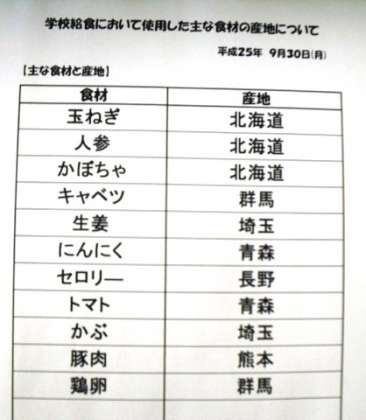 学校給食において使用した主な食材の産地について
平成25年 9月30日(月)
【主な食材と産地】
食材 産地
玉ねぎ 北海道
人参 北海道
かぼちゃ 北海道
キャベツ 群馬
生姜 埼玉
にんにく 青森
セロリー 長野
トマト 青森
かぶ 埼玉
豚肉 熊本
鶏卵 群馬